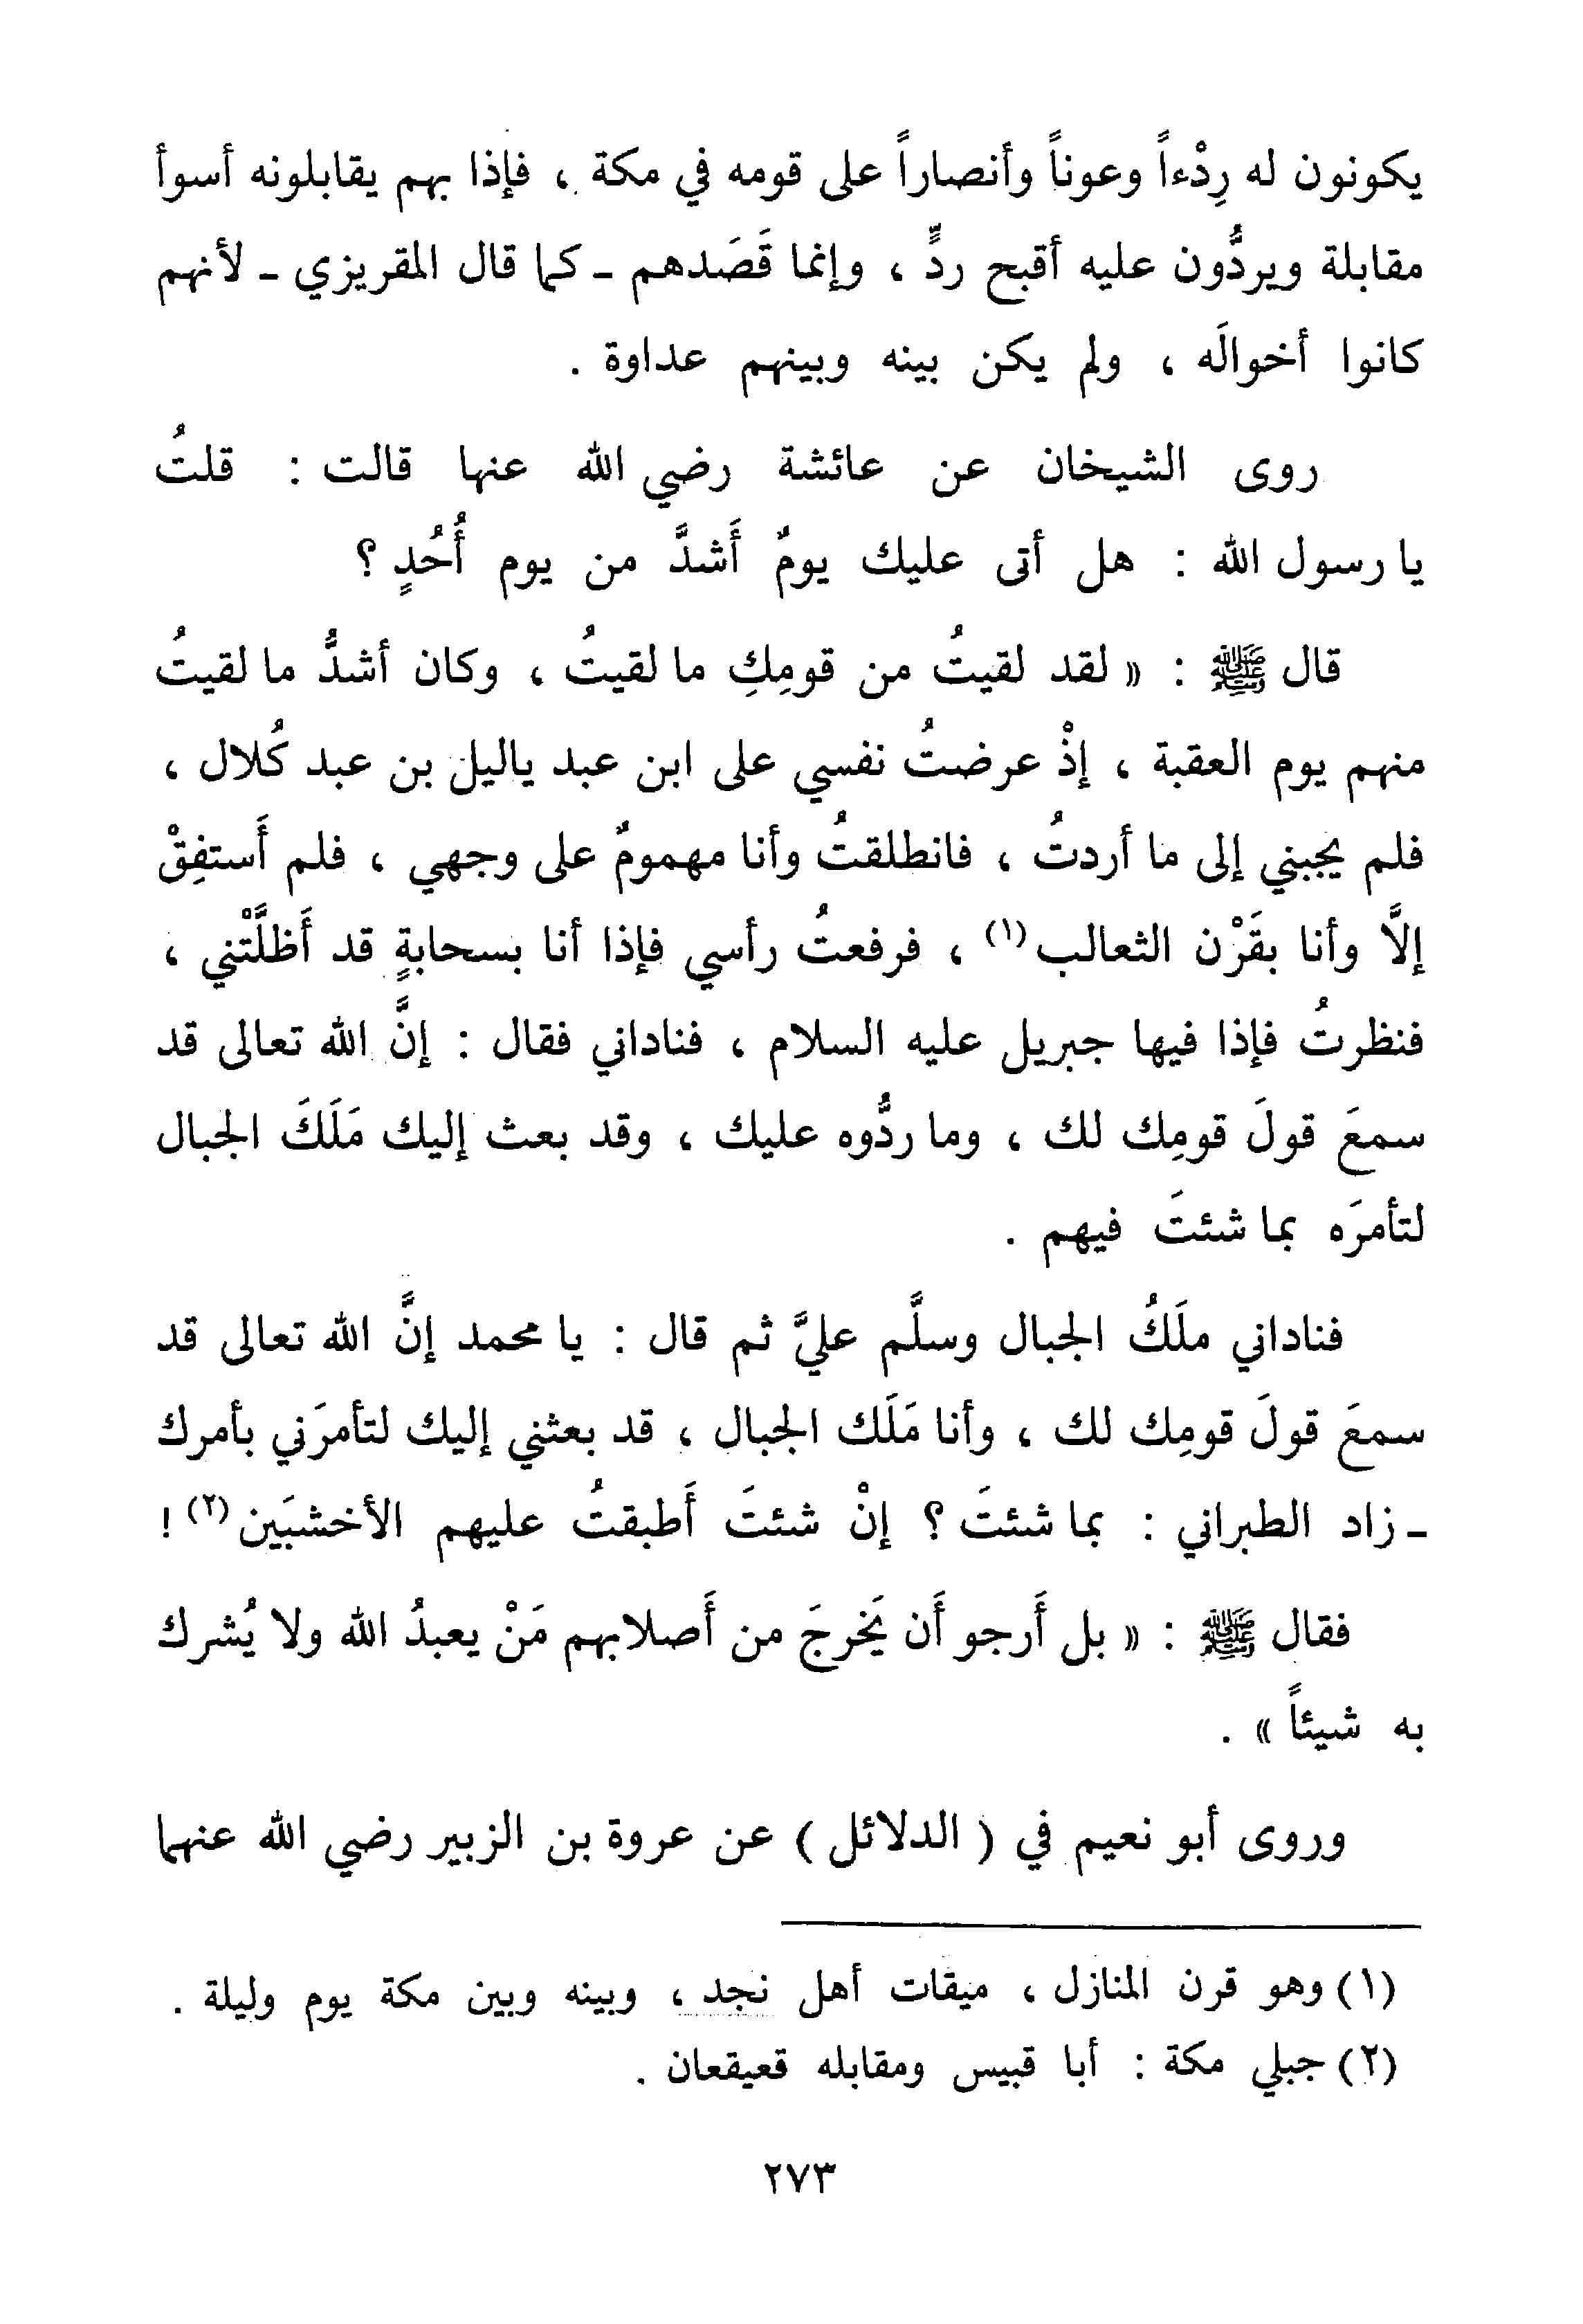 يكونون له رِدْءاً وعوناً وأنصاراً على قومه في مكة ، فإذا بهم يقابلونه أسوأ
مقابلة ويردُّون عليه أقبح ردٍّ ، وإنما قَصَدهم ـ كما قال المقريزي ـ لأنهم
كانوا أخوالَه ، ولم يكن بينه وبينهم عداوة .
روى الشيخان عن عائشة رضي الله عنها قالت : قلتُ
يا رسول الله : هل أتى عليك يومٌ أَشدَّ من يوم أُحُدٍ ؟
قال ﷺ : « لقد لقيتُ من قومِكِ ما لقيتُ ، وكان أشدُّ ما لقيتُ
منهم يوم العقبة ، إذْ عرضتُ نفسي على ابن عبد ياليل بن عبد كُلال ،
فلم يجبني إلى ما أردتُ ، فانطلقتُ وأنا مهمومٌ على وجهي ، فلم أَستفِقْ
إلاَّ وأنا بقَرْن الثعالب (١) ، فرفعتُ رأسي فإذا أنا بسحابةٍ قد أَظلَّتْني ،
فنظرتُ فإذا فيها جبريل عليه السلام ، فناداني فقال : إنَّ الله تعالى قد
سمعَ قولَ قومِك لك ، وما ردُّوه عليك ، وقد بعث إليك مَلَكَ الجبال
لتأمرَه بما شئتَ فيهم .
فناداني ملَكُ الجبال وسلَّم عليَّ ثم قال : يا محمد إنَّ الله تعالى قد
سمعَ قولَ قومِك لك ، وأنا مَلَك الجبال ، قد بعثني إليك لتأمرَني بأمرك
ـ زاد الطبراني : بما شئتَ ؟ إنْ شئتَ أَطبقتُ عليهم الأخشبَين (٢) !
فقال ﷺ : « بل أَرجو أَن يَخرجَ من أَصلابهم مَنْ يعبدُ الله ولا يُشرك
به شيئاً » .
وروى أبو نعيم في ( الدلائل ) عن عروة بن الزبير رضي الله عنهما
(١) وهو قرن المنازل ، ميقات أهل نجد ، وبينه وبين مكة يوم وليلة .
(٢) جبلي مكة : أبا قبيس ومقابله قعيقعان .
٢٧٣